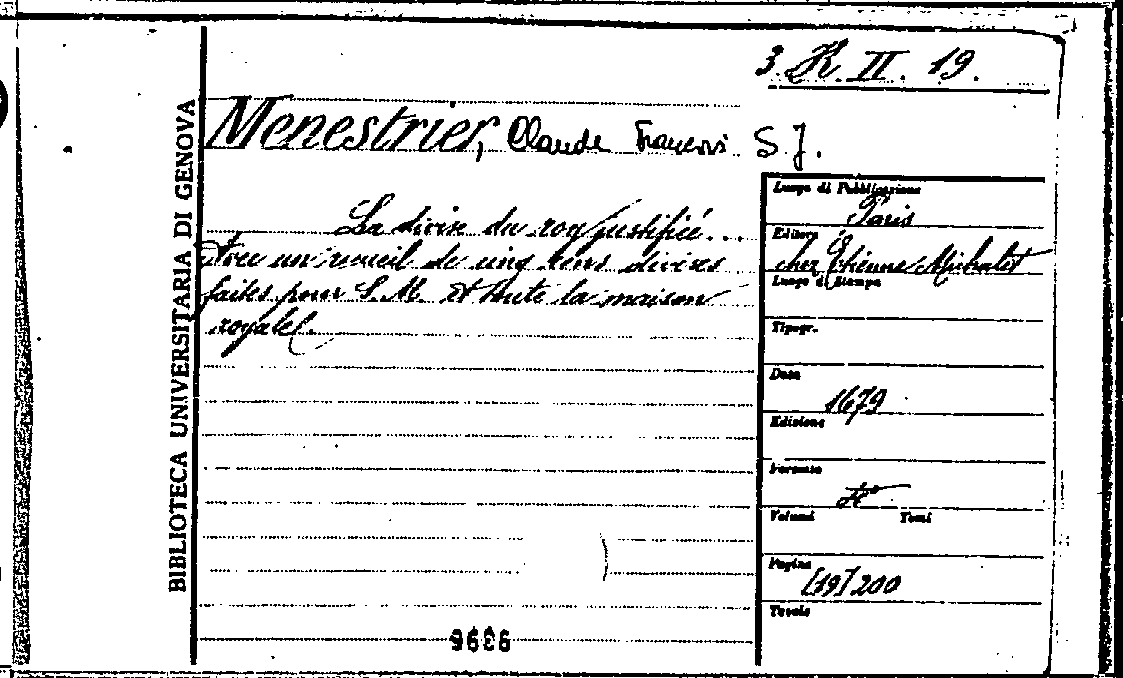 3 R II. 19.
BIBLIOTECA UNIVERSITARIA DI GENOVA
Menestrier, Claude François S.J.
La divise du roy justifiée...
Avec un recueil de cinq cens divises
faites pour S. M. et toute la maison
royale.
Luogo di Pubblicazione
Paris
Editore
chez Étienne Michalet
Luogo di Stampa
Tipogr.
Data
1679
Edizione
Formato
4°
Volumi Tomi
Pagine
[19] 200
Tavole